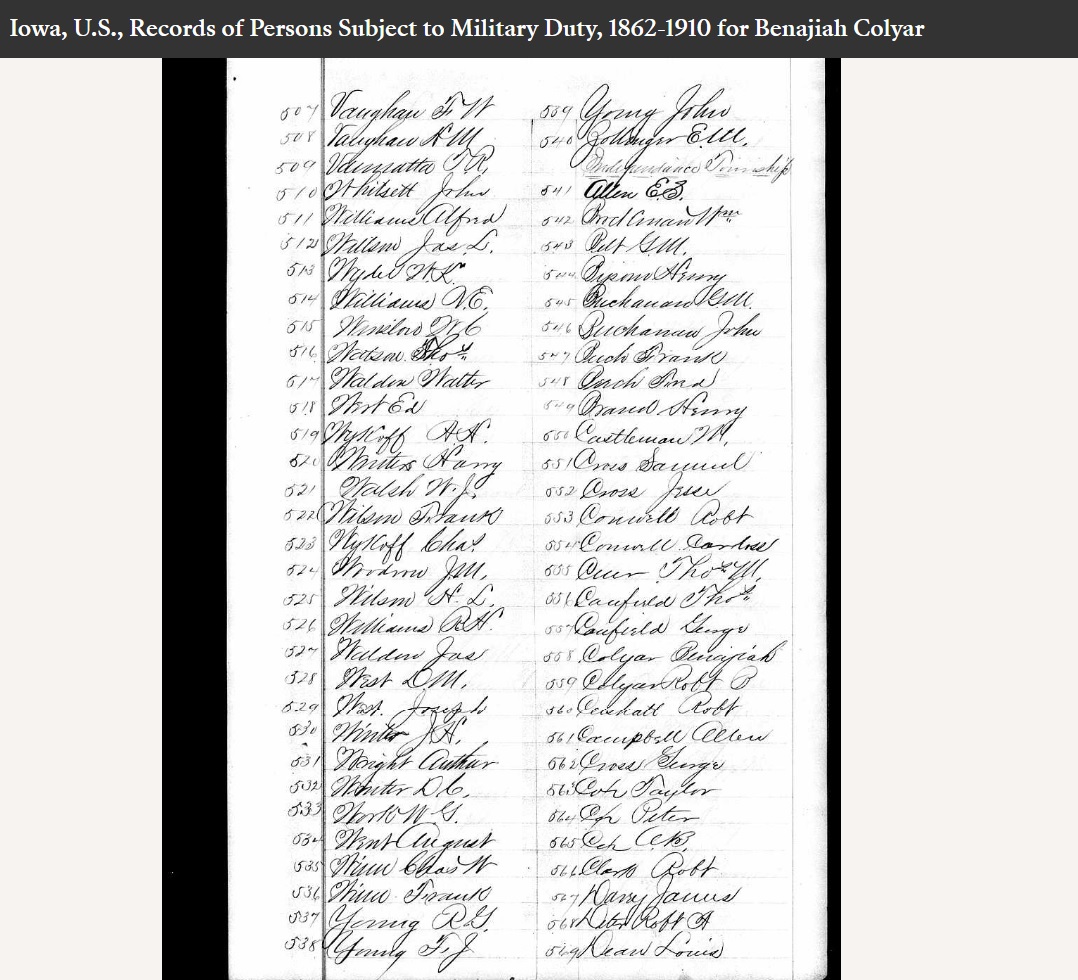 Iowa, U.S., Records of Persons Subject to Military Duty, 1862-1910 for Benajiah Colyar
507 Vaughan F. W
508 Vaughan H M
509 Vanzatta
510 Whitsett John
511 Williams Alfred
512 Willson Jas L.
513 W.K.
514 Williams N.E.
515 Winslow W C
516 Watson Thos
517 Walden Walter
518 West Ed
519 Wykoff A.H.
520 Winters Harry
521 Walsh W. J.
522 Wilson Frank
523 Wykoff Chas.
524 Woodrow J.M.
525 Wilson H. L.
526 Williams R.H.
527 Walden Jas
528 West D.M.
529 West. Joseph
530 Winter J.H.
531 Wright Arthur
532 Winter D.C.
533 Work W. G.
534 Went August
535 Winn Chas W
536 Winn Frank
537 Young R.G.
538 Young F. J
539 Young John
540 Zollinger E.M.
Independance Township
541 Allen E.B.
542 Wm
543 Belt G.M.
544 Henry
545 Buchanan G.M.
546 Buchanan John
547 Buch Frank
548 Buch
549 Brand Henry
550 Castleman M.
551 Cross Samuel
552 Cross Jesse
553 Conwell Robt
554 Conwell
555 Thos M.
556 Caufield Thos
557 Caufield George
558 Colyar Benajiah
559 Colyar Robt P
560 Robt
561 Campbell Allen
562 Cross George
563 Taylor
564 Peter
565
566 Clark Robt
567 James
568 Robt A
569 Dean Louis